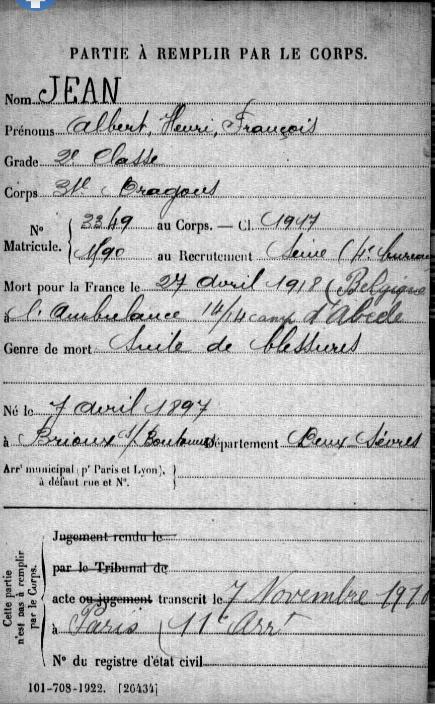 PARTIE À REMPLIR PAR LE CORPS.
Nom JEAN
Prénoms Albert, Henri, François
Grade 2e Classe
Corps 31e Dragons
N° Matricule. 2349 au Corps. — Cl. 1917
1490 au Recrutement Seine (4e bureau
Mort pour la France le 27 avril 1918 (Belgique
à l'Ambulance 14/14 camp d'Abele
Genre de mort Suite de blessures
Né le 7 avril 1897
à Brioux s/ Boutonne Département Deux Sèvres
Arrt municipal (pr Paris et Lyon),
à défaut rue et N°.
Cette partie n'est pas à remplir par le Corps.
Jugement rendu le
par le Tribunal de
acte ou jugement transcrit le 7 Novembre
à Paris (11e Arrt
N° du registre d'état civil
101-708-1922. [26434]